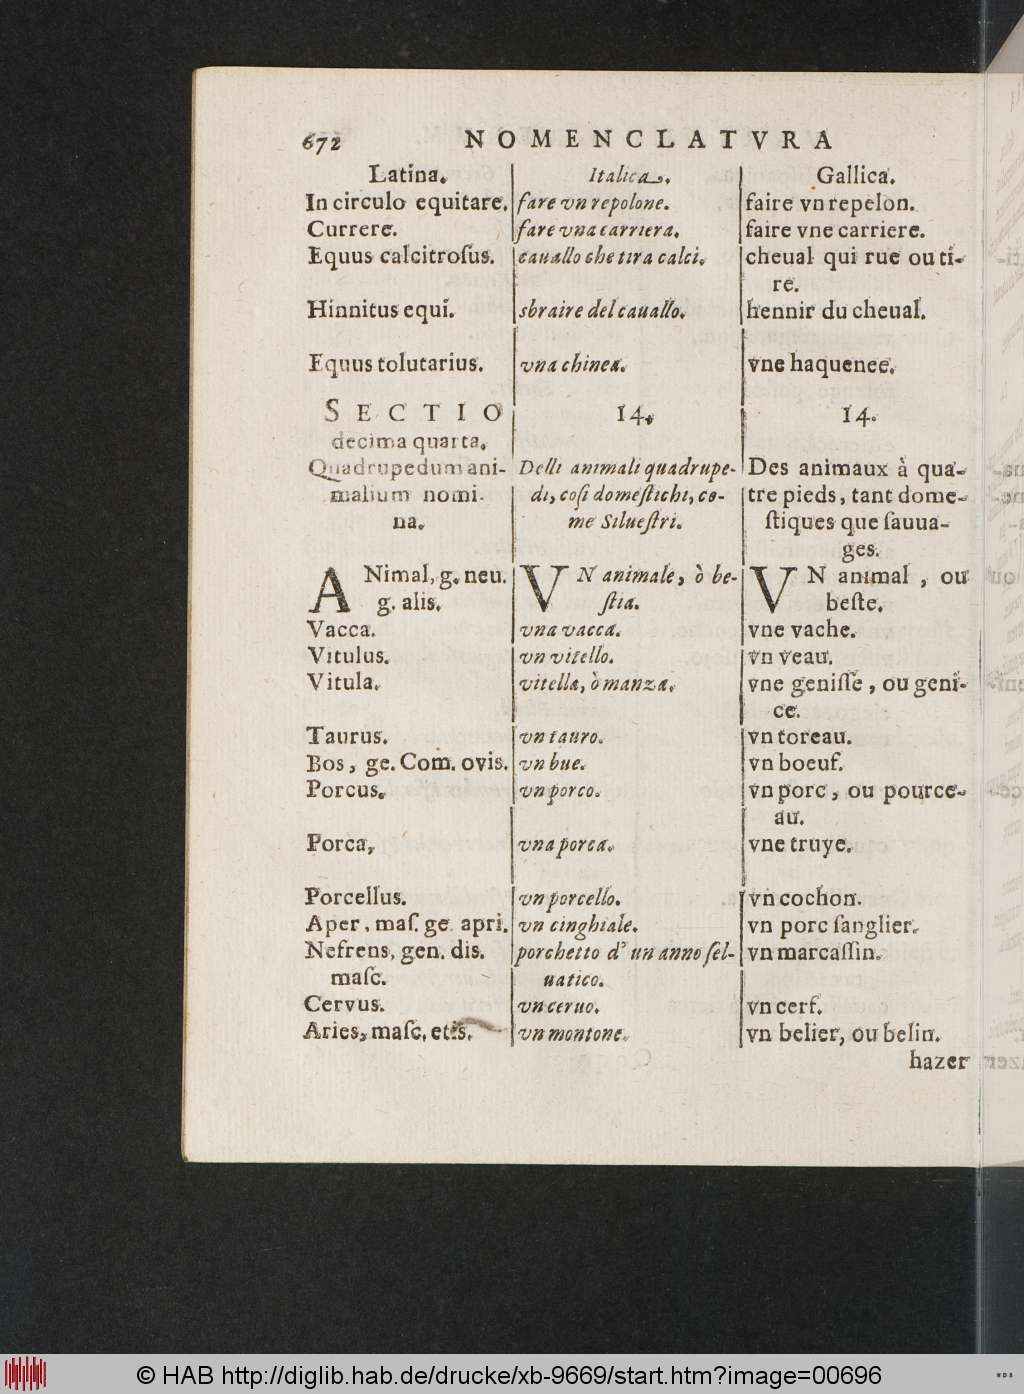 672 NOMENCLATVRA
Latina. Italica. Gallica.
In circulo equitare. fare vn repolone. faire vn repelon.
Currere. fare vna carriera. faire vne carriere.
Equus calcitroſus. cauallo che tira calci. cheual qui rue ou ti-
re.
Hinnitus equi. sbraire del cauallo. hennir du cheual.
Equus tolutarius. vna chinea. vne haquenee.
SECTIO 14. 14.
decima quarta.
Quadrupedum ani- Delli animali quadrupe- Des animaux à qua-
malium nomi- di, coſi domeſtichi, co- tre pieds, tant dome-
na. me Silueſtri. ſtiques que ſauua-
ges.
ANimal, g. neu. VN animale, ò be- VN animal, ou
g. alis. ſtia. beſte.
Vacca. vna vacca. vne vache.
Vitulus. vn vitello. vn veau.
Vitula. vitella, ò manza. vne geniſſe, ou geni-
ce.
Taurus. vn tauro. vn toreau.
Bos, ge. Com. ovis. vn bue. vn boeuf.
Porcus. vn porco. vn porc, ou pource-
au.
Porca, vna porca. vne truye.
Porcellus. vn porcello. vn cochon.
Aper, maſ. ge apri. vn cinghiale. vn porc ſanglier.
Nefrens, gen. dis. porchetto d'un anno ſel- vn marcaſſin.
maſc. uatico.
Cervus. vn ceruo. vn cerf.
Aries, maſc. etis. vn montone. vn belier, ou belin.
hazer
© HAB http://diglib.hab.de/drucke/xb-9669/start.htm?image=00696